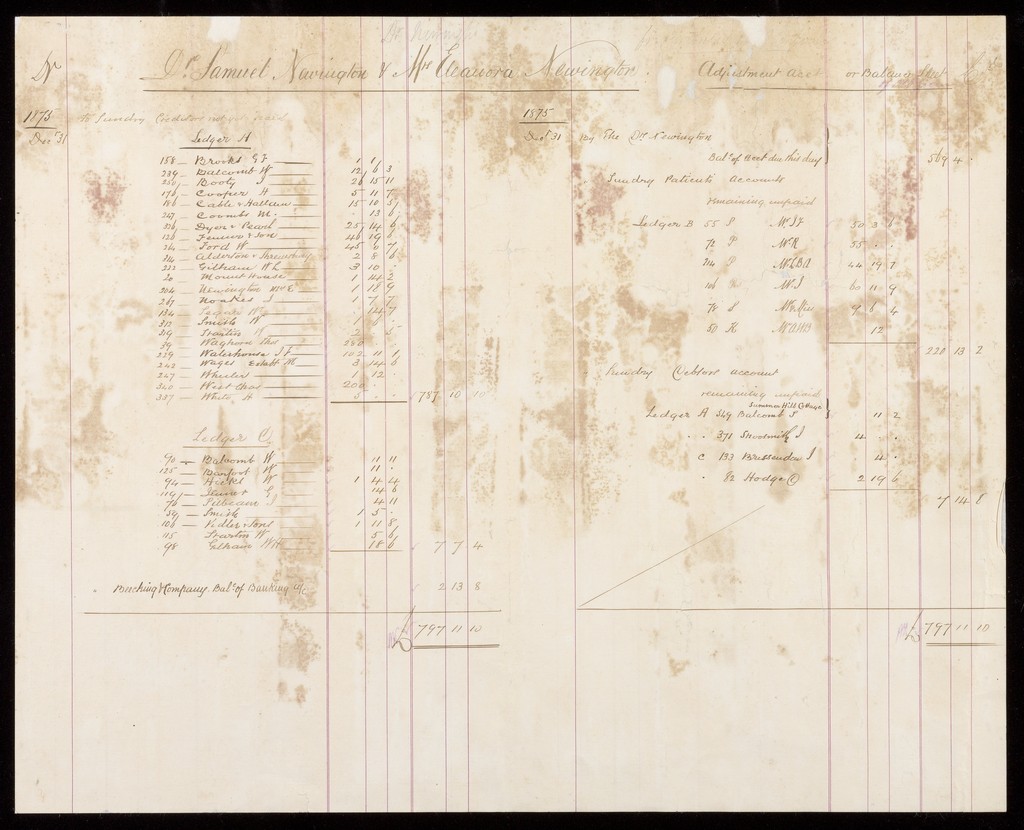 Dr
Dr. Samuel Newington & Mrs Eleanora Newington.
Adjustment Acct or Balance Sheet
1875
Dec 31
To Sundry Creditors not yet paid
Ledger A
158 — Brooks G F 1 1
239 — Balcomb W 12 6 3
250 — Booty J 26 15 11
176 — Cooper H 5 11 7
186 — Cable & Hallam 15 10 5
247 — Coombs M. . 13 6
Dyer & Pearch 25 14 6
& Son 46 19
Ford W 45 0 7
214 — Alderton & Shrewsbury 2 8 6
232 — Gilham W H 3 10 .
Mount House 1 14 3
204 — Newington 1 18 9
267 — Noakes J 1 7 7
134 — 14 7
312 — Smith W
319 — Starlin W
39 — Waghorn Thos 250
229 — Waterhouse J F 102 11 1
242 — Wages Estabt M 3 14 6
247 — Wheeler 1 12 .
340 — West Chas 200 .
357 — White H 5 . . 787 10 10
Ledger C.
90 — Balcomb W 11 11
125 — Barfoot W 11 .
94 — Hickel W 1 4 4
119 — G 14 6
76 — Silbeam J 4 11
59 — Smith 1 5 .
106 — Vidler & Sons 1 11 8
115 — Starlin W 5 6
98 Gilham W H 18 6 7 7 4
Beeching & Company. Bal. of Banking a/c 2 13 8
£ 797 11 10
1875
Dec 31 By The Dr. Newington
Bal. of Acct due this day 569 4 .
Sundry Patients Accounts
remaining unpaid
Ledger B 55 S 50 3 6
72 P Mr R 55 . .
214 44 19 7
106 Mr J 60 11 9
78 S 9 6 4
50 K 12
220 13 2
Sundry Debtors account
remaining unpaid
Summer Hill Cottage
Ledger A 349 Balcomb S . 11 2
. . 371 Shoesmith J 4 . .
C 133 Brissenden J . 4 .
. 82 Hodge C 2 19 6
7 14 8
£ 797 11 10